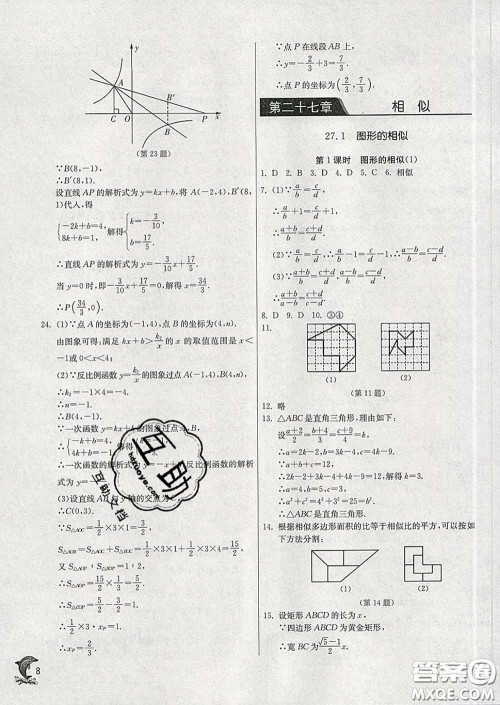 y
A
B′
C
O
P
x
B
(第23题)
∵B(8,-1),
∴B′(8,1).
设直线AP的解析式为y=kx+b,将A(-2,4),B′(8,1)代入,得
{-2k+b=4, 8k+b=1, 解得{k=-3/10, b=17/5.
∴直线AP的解析式为y=-3/10x+17/5.
当y=0时,即-3/10x+17/5=0,解得x=34/3.
∴P(34/3,0).
24. (1)∵点A的坐标为(-1,4),点B的坐标为(4,n),
由图象可得:满足kx+b>k₂/x的x的取值范围是x<-1或0<x<4;
(2)∵反比例函数y=k₂/x的图象过点A(-1,4),B(4,n),
∴k₂=-1×4=-4.
∴n=-1.
∴B(4,-1).
∵一次函数y=kx+b的图象过点
∴一次函数的解析式
反比例函数的解析
式为
(3)设直线AB与y轴的交点为C,
∴C(0,3).
∵S△AOC=1/2×3×1=3/2,
∴S△AOB=S△AOC+S△BOC=1/2×3×1+1/2×3×4=15/2.
又∵S△AOP∶S△BOP=1∶2,
∴S△AOP=15/2×1/3=5/2.
∴S△COP=5/2-3/2=1.
∴1/2×3·xP=1.
∴xP=2/3.
8
∵点P在线段AB上,
∴y=-2/3+3=7/3.
∴点P的坐标为(2/3,7/3).
第二十七章 相 似
27.1 图形的相似
第1课时 图形的相似(1)
1. D 2. B 3. D 4. D 5. C 6. 相似
7. (1)∵a/b=c/d,
∴a/b+1=c/d+1.
∴(a+b)/b=(c+d)/d.
(2)∵a/b=c/d,∴a/b-1=c/d-1.∴(a-b)/b=(c-d)/d.
(3)∵(a+b)/b=(c+d)/d,(a-b)/b=(c-d)/d,
∴(a+b)/(a-b)=(c+d)/(c-d).
8. D 9. D 10. ③④
11.
(1)
(2)
(第11题)
12. 略
13. △ABC是直角三角形,理由如下:
∴△ABC是直角三角形.
14. 根据相似多边形面积的比等于相似比的平方,可以按如下方法分割:
(1)
(2)
(第14题)
15. 设矩形ABCD的长为x,
∵四边形ABCD为黄金矩形,
∴宽BC为(√5-1)/2x.
互助
互助文档
答案圈
MXQE.COM